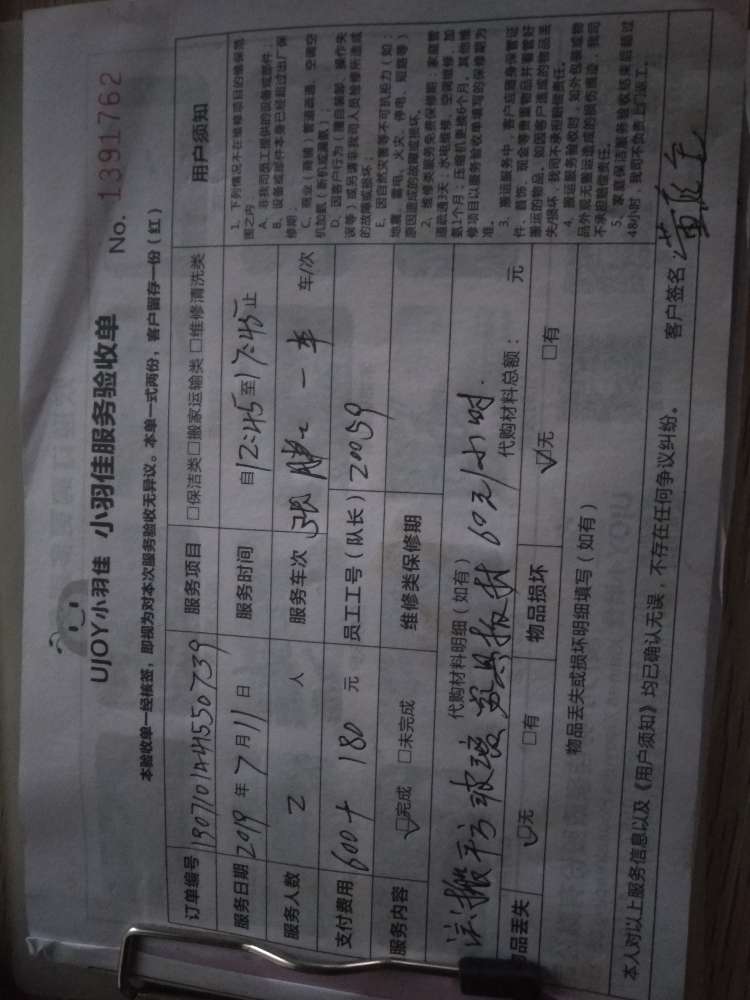 UJOY小羽佳 小羽佳服务验收单
No. 1391762
本验收单一经核签，即视为对本次服务验收无异议。本单一式两份，客户留存一份（红）
订单编号 19071014415507 39 服务项目 □保洁类□搬家运输类□维修清洗类
服务日期 2019 年 7 月 11 日 服务时间 自 12:45 至 17:45 止
服务人数 2 人 服务车次 一车 车/次
支付费用 600+ 180 元 员工工号（队长） 20059
服务内容 ☑完成 □未完成 维修类保修期
代购材料明细（如有） 代购材料总额： 元
搬 玻璃 60元/小时.
物品丢失 ☑无 □有 物品损坏 ☑无 □有
物品丢失或损坏明细填写（如有）
本人对以上服务信息以及《用户须知》均已确认无误，不存在任何争议纠纷。 客户签名：
用户须知
1、下列情况不在维修项目的维保范
围之内
A、非我司员工提供的设备或部件；
B、设备或部件本身已经超过出厂保
修期；
C、商业（商铺）管道疏通、空调空
机加氨（新机或漏氨）；
D、因客户行为（擅自装卸、操作失
误等）或另请非我司人员维修所造成
的故障或损坏；
E、因自然灾害等不可抗拒力（如：
地震、雷电、火灾、停电、短路等）
原因造成的故障或损坏。
2、维修类服务免费保修期：家庭管
道疏通3天；水电维修、空调维修、加
氨1个月；压缩机更换6个月，其他维
修项目以服务验收单填写的保修期为
准。
3、搬运服务中，客户应随身保管证
件、首饰、现金等贵重物品并看管好
搬运的物品，如因客户造成的物品丢
失/损坏，我司不承担赔偿责任。
4、搬运服务验收时，如外包装或物
品外观无搬运造成的损伤痕迹，我司
不承担赔偿责任。
5、家庭保洁服务验收结束后超过
48小时，我司不负责上门返工。